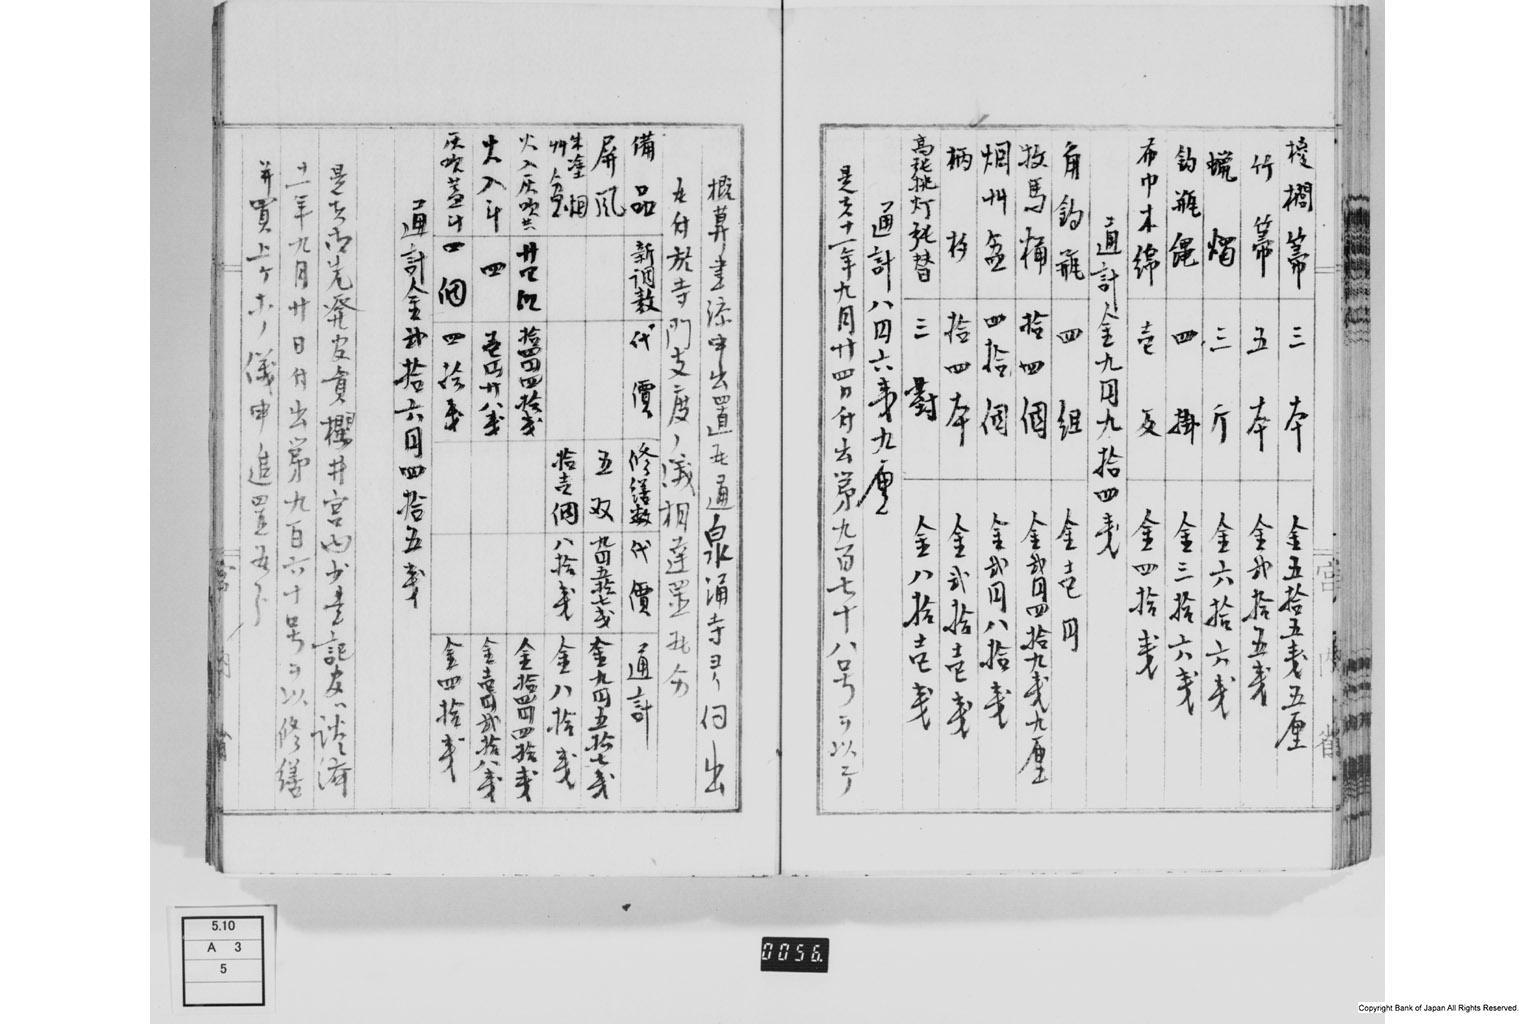 棕梠箒 三本 金五拾五銭五厘
竹箒 五本 金弐拾五銭
蝋燭 三斤 金六拾六銭
釣瓶縄 四掛 金三拾六銭
布巾木綿 壱反 金四拾銭
通計金九円九拾四銭
角釣瓶 四組 金壱円
牧馬桶 拾四個 金弐円四拾九銭九厘
烟艸盆 四拾個 金弐円八拾銭
柄杓 拾四本 金弐拾壱銭
高張挑灯張替 三對 金八拾壱銭
通計八円六銭九厘
是ハ十一年九月廿四日付出第九百七十八号ヲ以テ
概算書添申出置候通泉涌寺ヨリ伺出
候付於寺門支度ノ儀相達置候分
備品 新調数 代價 修繕数 代價 通計
屏風 五双 九円五拾七銭 金九円五拾七銭
朱塗烟艸盆 拾壱個 八拾銭 金八拾銭
火入灰吹共 廿四组 拾四円四拾銭 金拾四円四拾銭
火入斗 四 壱円廿八銭 金壱円弐拾八銭
灰吹蓋斗 四個 四拾銭 金四拾銭
通計金弐拾六円四拾五銭
是ハ
十一年九月廿日付出第九百六十号ヲ以修繕
并買上ケ等ノ儀申進置候分
宮内省
5.10
A 3
5
0056.
Copyright Bank of Japan All Rights Reserved.